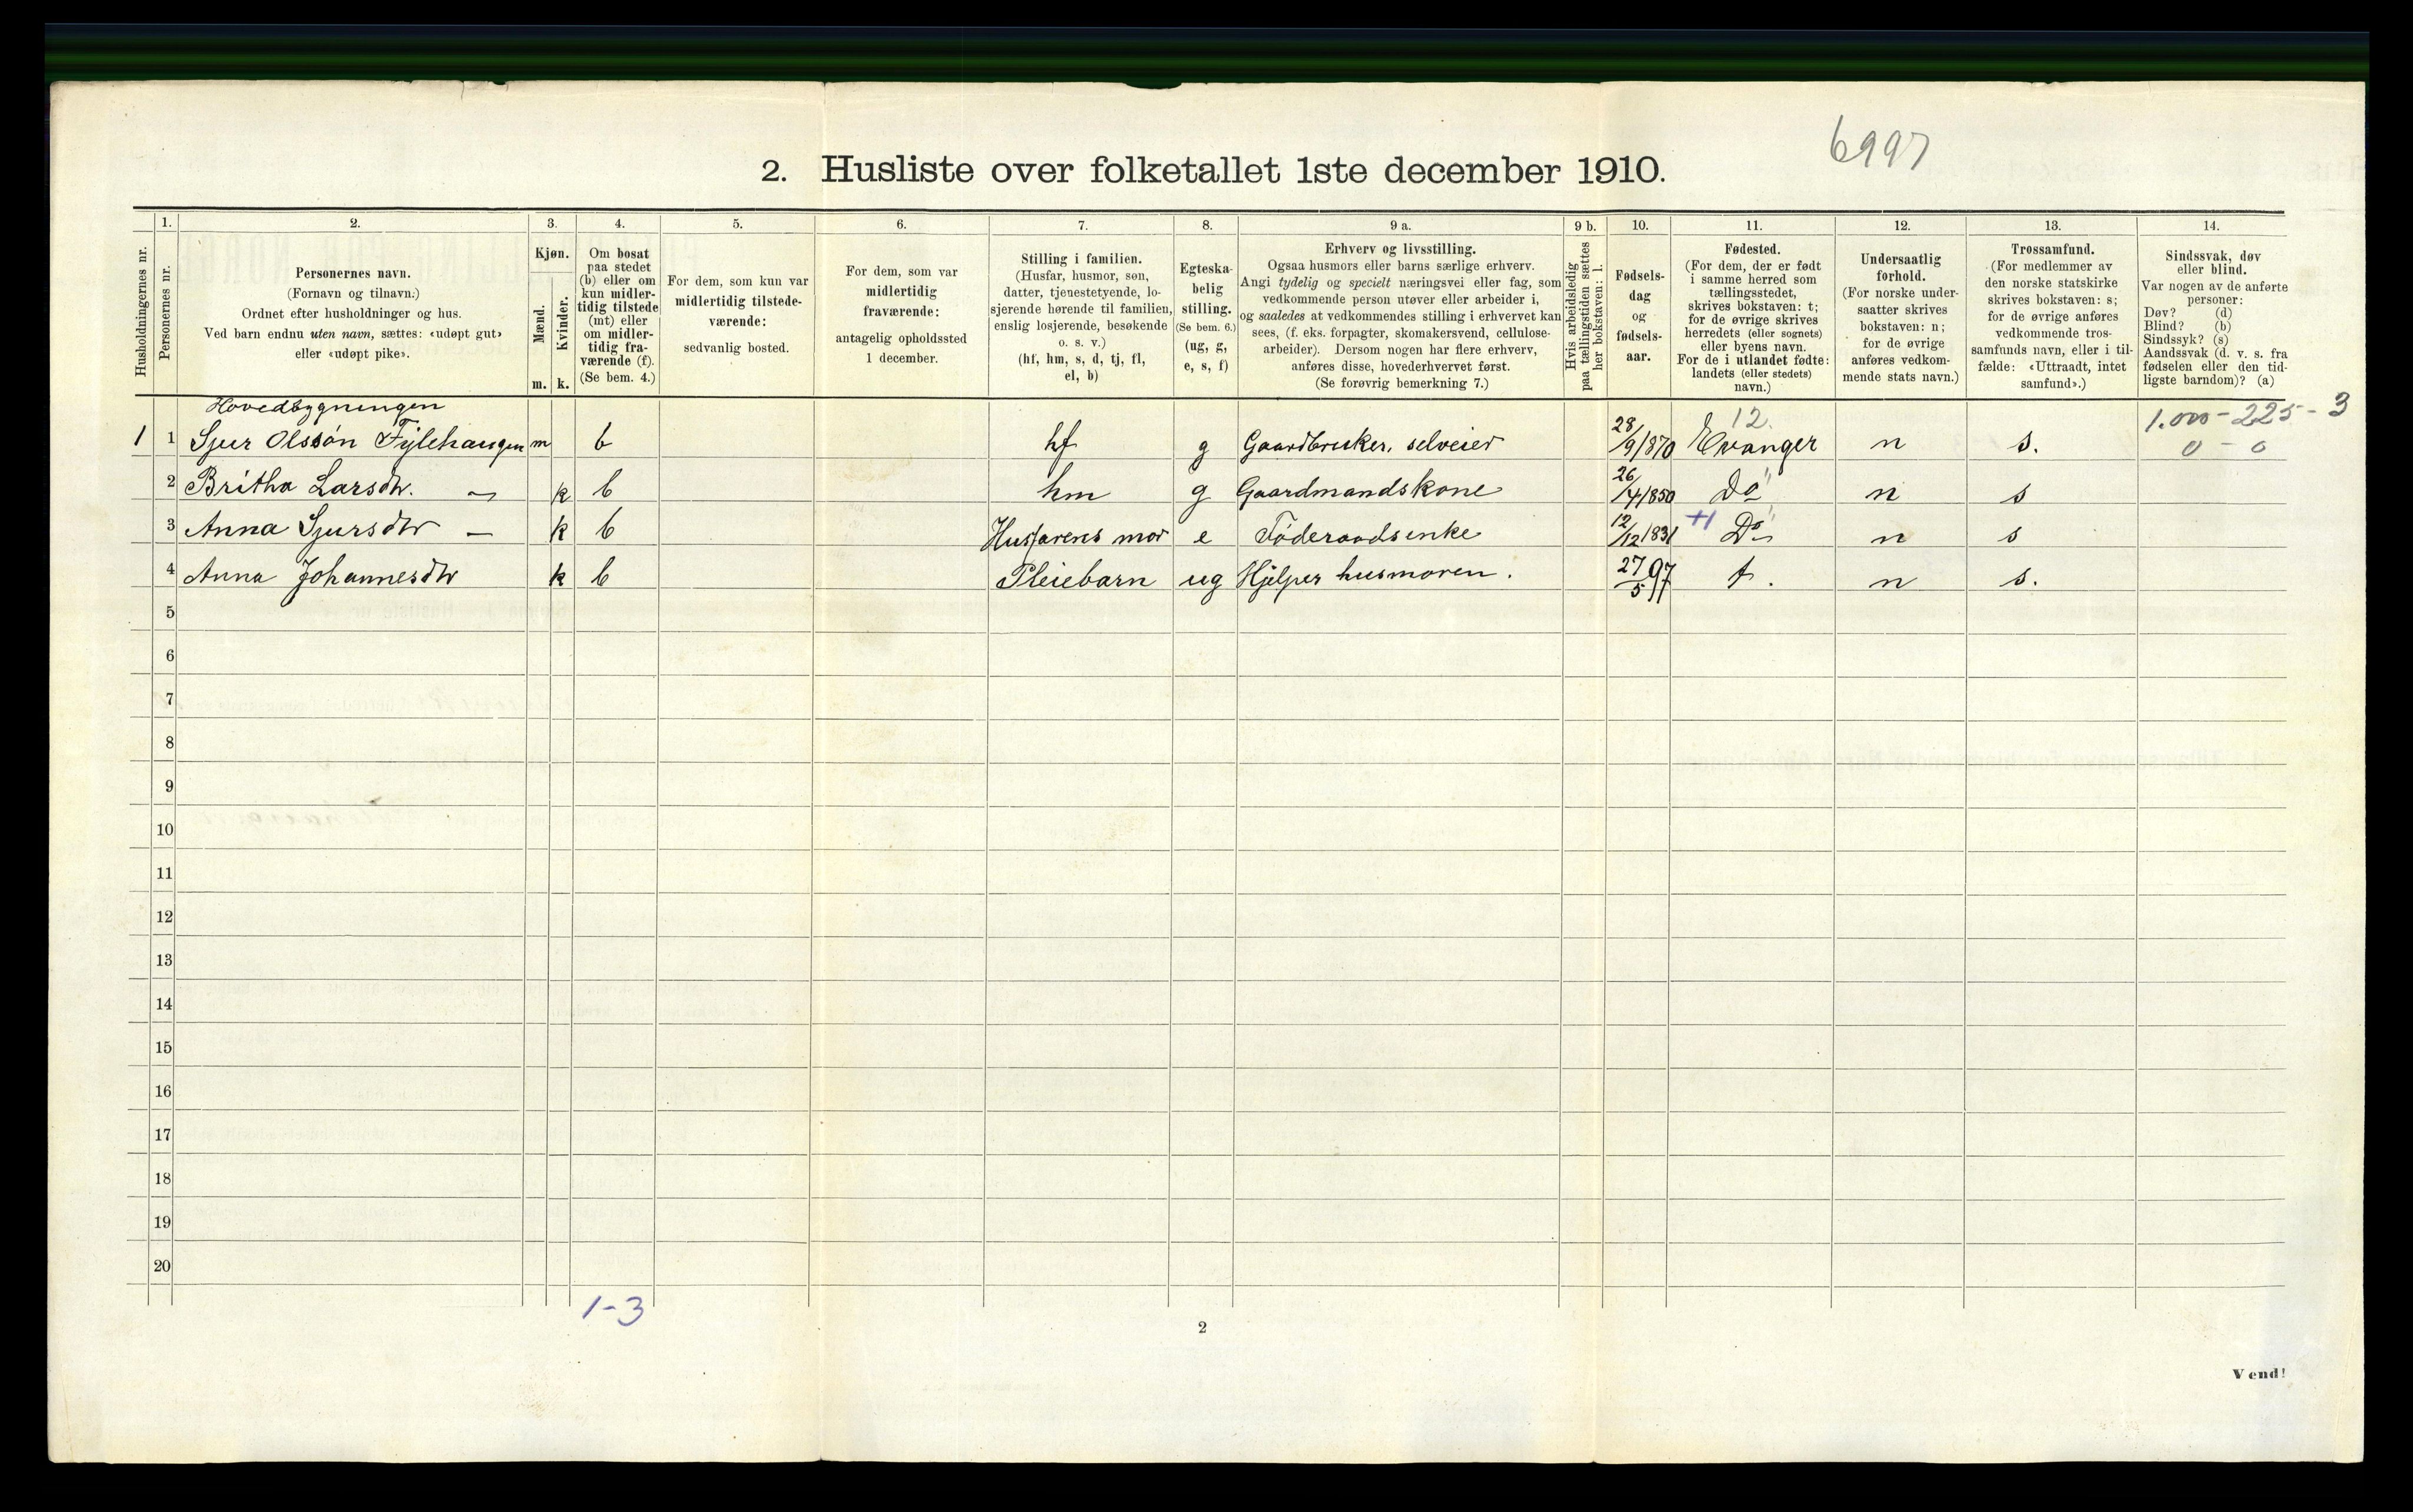 6997
2. Husliste over folketallet 1ste december 1910.
Husholdningernes nr.
1.
Personernes nr.
2.
Personernes navn.
(Fornavn og tilnavn.)
Ordnet efter husholdninger og hus.
Ved barn endnu uten navn, sættes: «udøpt gut»
eller «udøpt pike».
3.
Kjøn.
Mænd.
Kvinder.
m. k.
4.
Om bosat
paa stedet
(b) eller om
kun midler-
tidig tilstede
(mt) eller
om midler-
tidig fra-
værende (f).
(Se bem. 4.)
5.
For dem, som kun var
midlertidig tilstede-
værende:
sedvanlig bosted.
6.
For dem, som var
midlertidig
fraværende:
antagelig opholdssted
1 december.
7.
Stilling i familien.
(Husfar, husmor, søn,
datter, tjenestetyende, lo-
sjerende hørende til familien,
enslig losjerende, besøkende
o. s. v.)
(hf, hm, s, d, tj, fl,
el, b)
8.
Egteska-
belig
stilling.
(Se bem. 6.)
(ug, g,
e, s, f)
9 a.
Erhverv og livsstilling.
Ogsaa husmors eller barns særlige erhverv.
Angi tydelig og specielt næringsvei eller fag, som
vedkommende person utøver eller arbeider i,
og saaledes at vedkommendes stilling i erhvervet kan
sees, (f. eks. forpagter, skomakersvend, cellulose-
arbeider). Dersom nogen har flere erhverv,
anføres disse, hovederhvervet først.
(Se forøvrig bemerkning 7.)
9 b.
Hvis arbeidsledig
paa tællingstiden sættes
her bokstaven: l.
10.
Fødsels-
dag
og
fødsels-
aar.
11.
Fødested.
(For dem, der er født
i samme herred som
tællingsstedet,
skrives bokstaven: t;
for de øvrige skrives
herredets (eller sognets)
eller byens navn.
For de i utlandet fødte:
landets (eller stedets)
navn.)
12.
Undersaatlig
forhold.
(For norske under-
saatter skrives
bokstaven: n;
for de øvrige
anføres vedkom-
mende stats navn.)
13.
Trossamfund.
(For medlemmer av
den norske statskirke
skrives bokstaven: s;
for de øvrige anføres
vedkommende tros-
samfunds navn, eller i til-
fælde: «Uttraadt, intet
samfund».)
14.
Sindssvak, døv
eller blind.
Var nogen av de anførte
personer:
Døv? (d)
Blind? (b)
Sindssyk? (s)
Aandssvak (d. v. s. fra
fødselen eller den tid-
ligste barndom)? (a)
Hovedbygningen 12. 1.000 - 225 - 3
1 1 Sjur Olssøn Fylehaugen m b hf g Gaardbruker, selveier 28/9/870 Evanger n s. 0 - 0
2 Britha Larsdtr. — k b hm g Gaardmandskone 26/4/850 Do n s
3 Anna Sjursdtr — k b Husfarens mor e Føderaadsenke 12/12/831 Do n s
4 Anna Johannesdtr k b Pleiebarn ug Hjelper husmoren. 27/5 97 t. n s.
5
6
7
8
9
10
11
12
13
14
15
16
17
18
19
20
1-3
2
Vend!